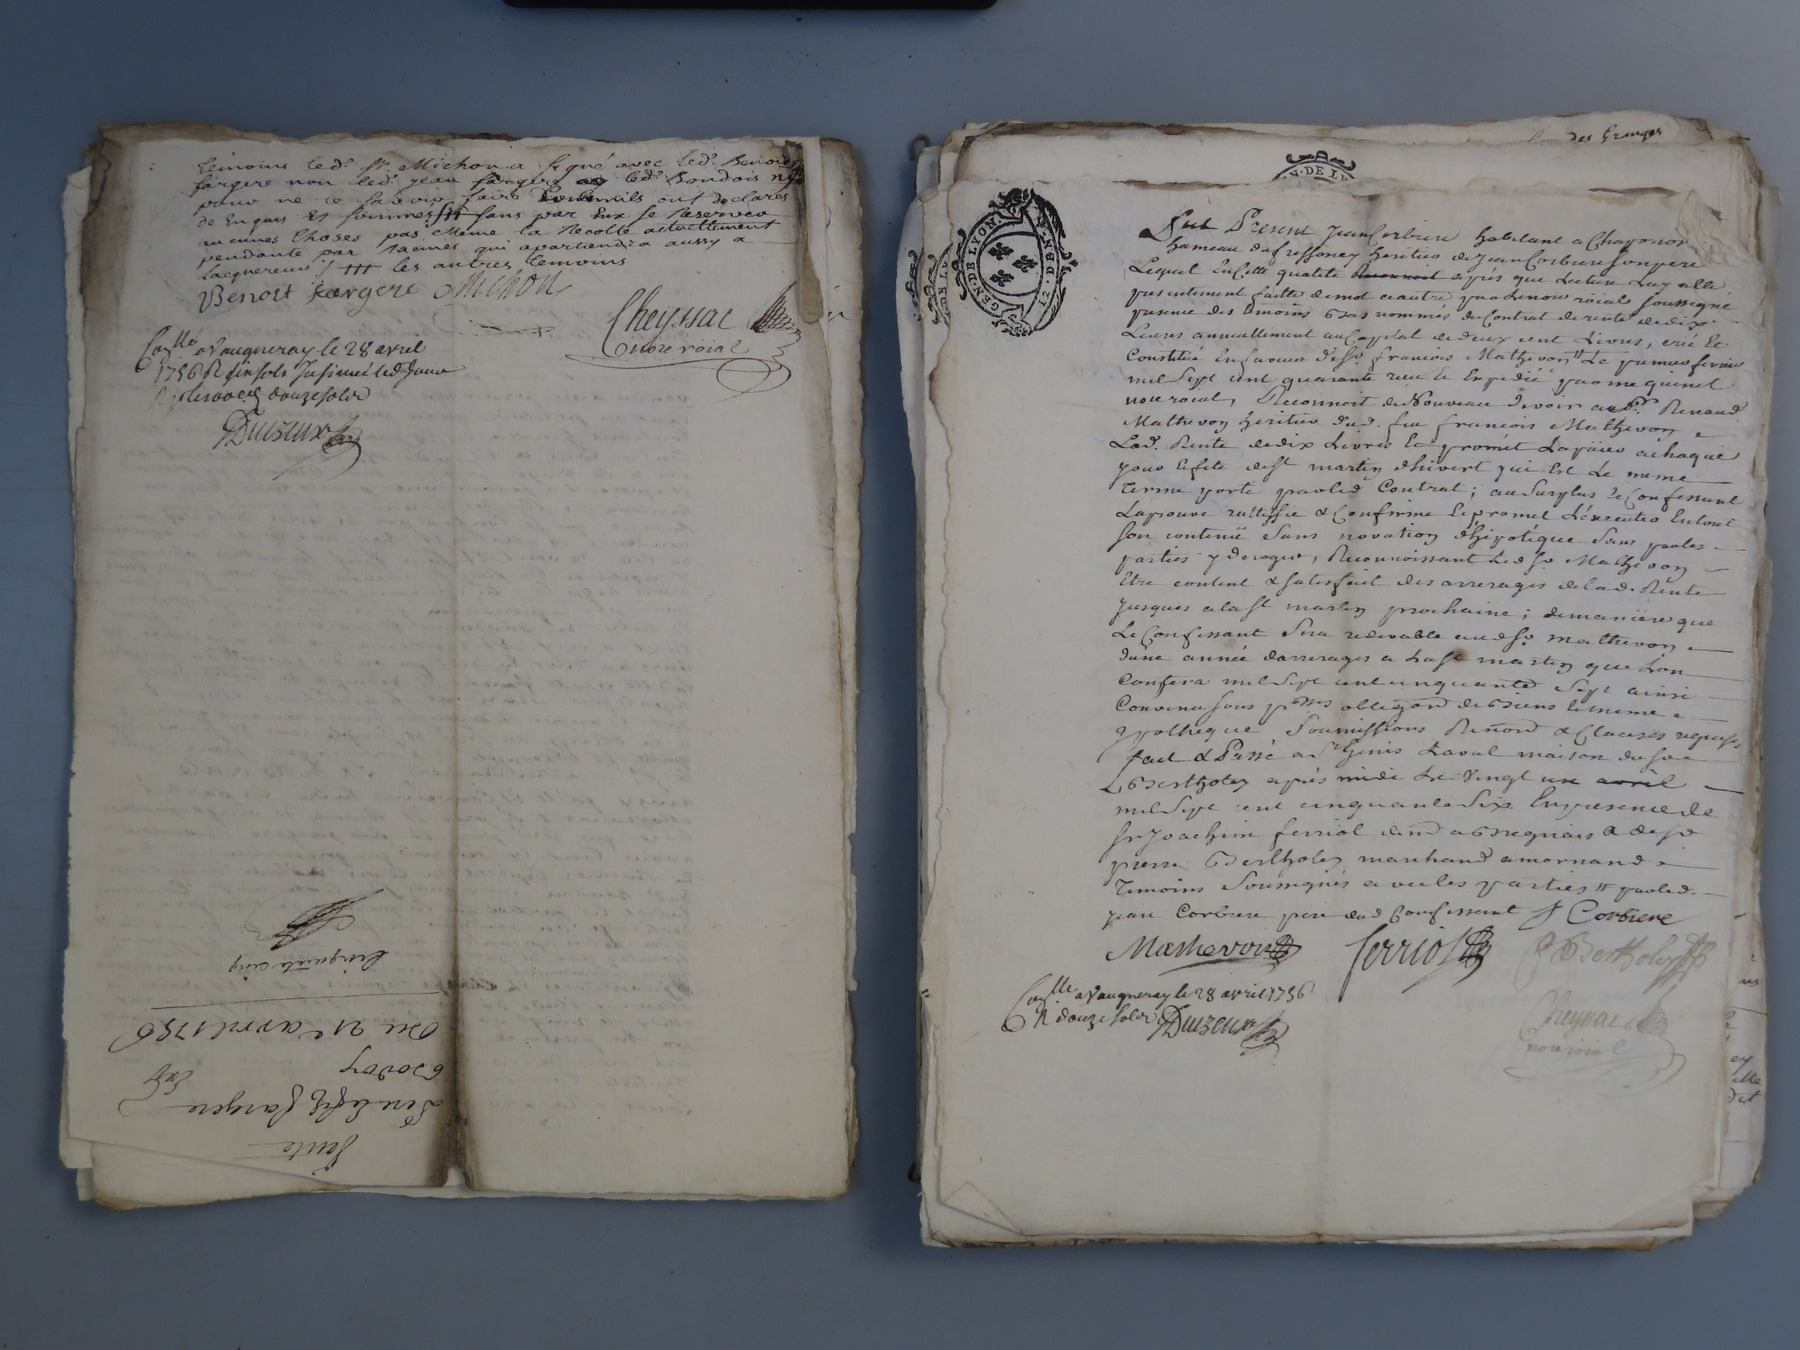 temoins led. Sr. Michon a signé avec led. Benoist
fargere non led. jean fargere ny led. Boudois
pour ne le savoir faire
de Enquis Et sommes sans par Eux se Reserver
aucunes Choses pas meme la Recolte actuellement
pendante par racines qui apartiendra aussy a
lacquereur les autres temoins
Benoit fargere Michon
Cheyssac
no.re roial
Con.llé a Vaugneray le 28 avril
1756 R.
douze solds
Duizeux
Cinquante cinq
Du 21e avril 1756
Bovoy
fargere
Vente
des Granges
GEN·DE LYON
12·DEN·P
Fut Present Jean Corbiere habitant a Chaponost
hameau de fressoney heritier de Jean Corbiere son pere
Lequel En Cette qualité Reconnoit apres que Lecture Luy a Eté
presentement faitte de mot a autre par Le no.re roial soussigné
presence des temoins Bas nommés du Contrat de rente de dix
Livres annuellement au Capital de deux cent Livres, créé Et
Constitué En faveur de sr. francois Mathevon Le premier fevrier
mil sept cent quarante
no.re roial, Reconnoit de Nouveau devoir a Sr. Renaud
Mathevon heritier dud. feu francois Mathevon
Lad. Rente de dix Livres Et promet La païer a chaque
jour Et fete de St martin d'hivert qui Est Le meme
terme porté par led Contrat; au surplus le Confessant
Laprouve rattiffie & Confirme Et promet L'éxecuter En tout
son contenüe Sans novation d'hipotéque Sans que les
parties y deroge, Reconnoissant Led Sr Mathevon
Etre content & satisfait des arrerages de lad. Rente
jusques a la St martin prochaine; de maniere que
Le Confessant Sera redevable aud Sr. Mathevon
d'une année darrerages a La St martin que L'on
Contera mil sept cent cinquante Sept ainsi
Convenu sous obligaon de Biens le meme
ypotheque Soumissions Renon & Clauses requises
fait & Passé a St Genis Laval maison du Sr
Bertholey après midi Le Vingt un avril
mil sept cent cinquante Six En presence de
Sr Joachim ferriol dem.t a Bregnais & de Sr
pierre Bertholey marchand a mornand
Temoins Soussignés avec les parties par led.
jean Corbiere pere dud Confessant J Corbiere
Mathevon ferriol Bertholey
Con.llé a Vaugneray le 28 avril 1756
R douze solds Duizeux
Cheyssac
no.re roial